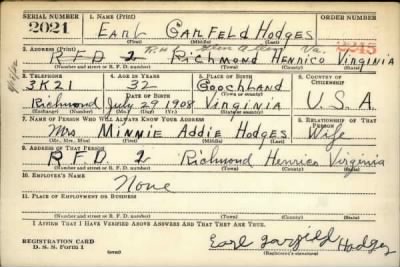 SERIAL NUMBER 1. NAME (Print) ORDER NUMBER
2021 EARL GARFELD HODGES 2245
(First) (Middle) (Last)
2. ADDRESS (Print) Glen Allen Va.
R F D 2 RICHMOND HENRICO VIRGINIA
(Number and street or R. F. D. number) (Town) (County) (State)
3. TELEPHONE 4. AGE IN YEARS 5. PLACE OF BIRTH 6. COUNTRY OF CITIZENSHIP
3K21 32 GOOCHLAND
DATE OF BIRTH (Town or county)
Richmond July 29 1908 VIRGINIA U. S. A.
(Exchange) (Number) (Mo.) (Day) (Yr.) (State or country)
7. NAME OF PERSON WHO WILL ALWAYS KNOW YOUR ADDRESS 8. RELATIONSHIP OF THAT PERSON
Mrs MINNIE ADDIE HODGES Wife
(Mr., Mrs., Miss) (First) (Middle) (Last)
9. ADDRESS OF THAT PERSON
R F D. 2 Richmond Henrico Virginia
(Number and street or R. F. D. number) (Town) (County) (State)
10. EMPLOYER'S NAME
None
11. PLACE OF EMPLOYMENT OR BUSINESS
(Number and street or R. F. D. number) (Town) (County) (State)
I AFFIRM THAT I HAVE VERIFIED ABOVE ANSWERS AND THAT THEY ARE TRUE.
REGISTRATION CARD
D. S. S. Form 1 Earl Garfield Hodges
(Registrant's signature)